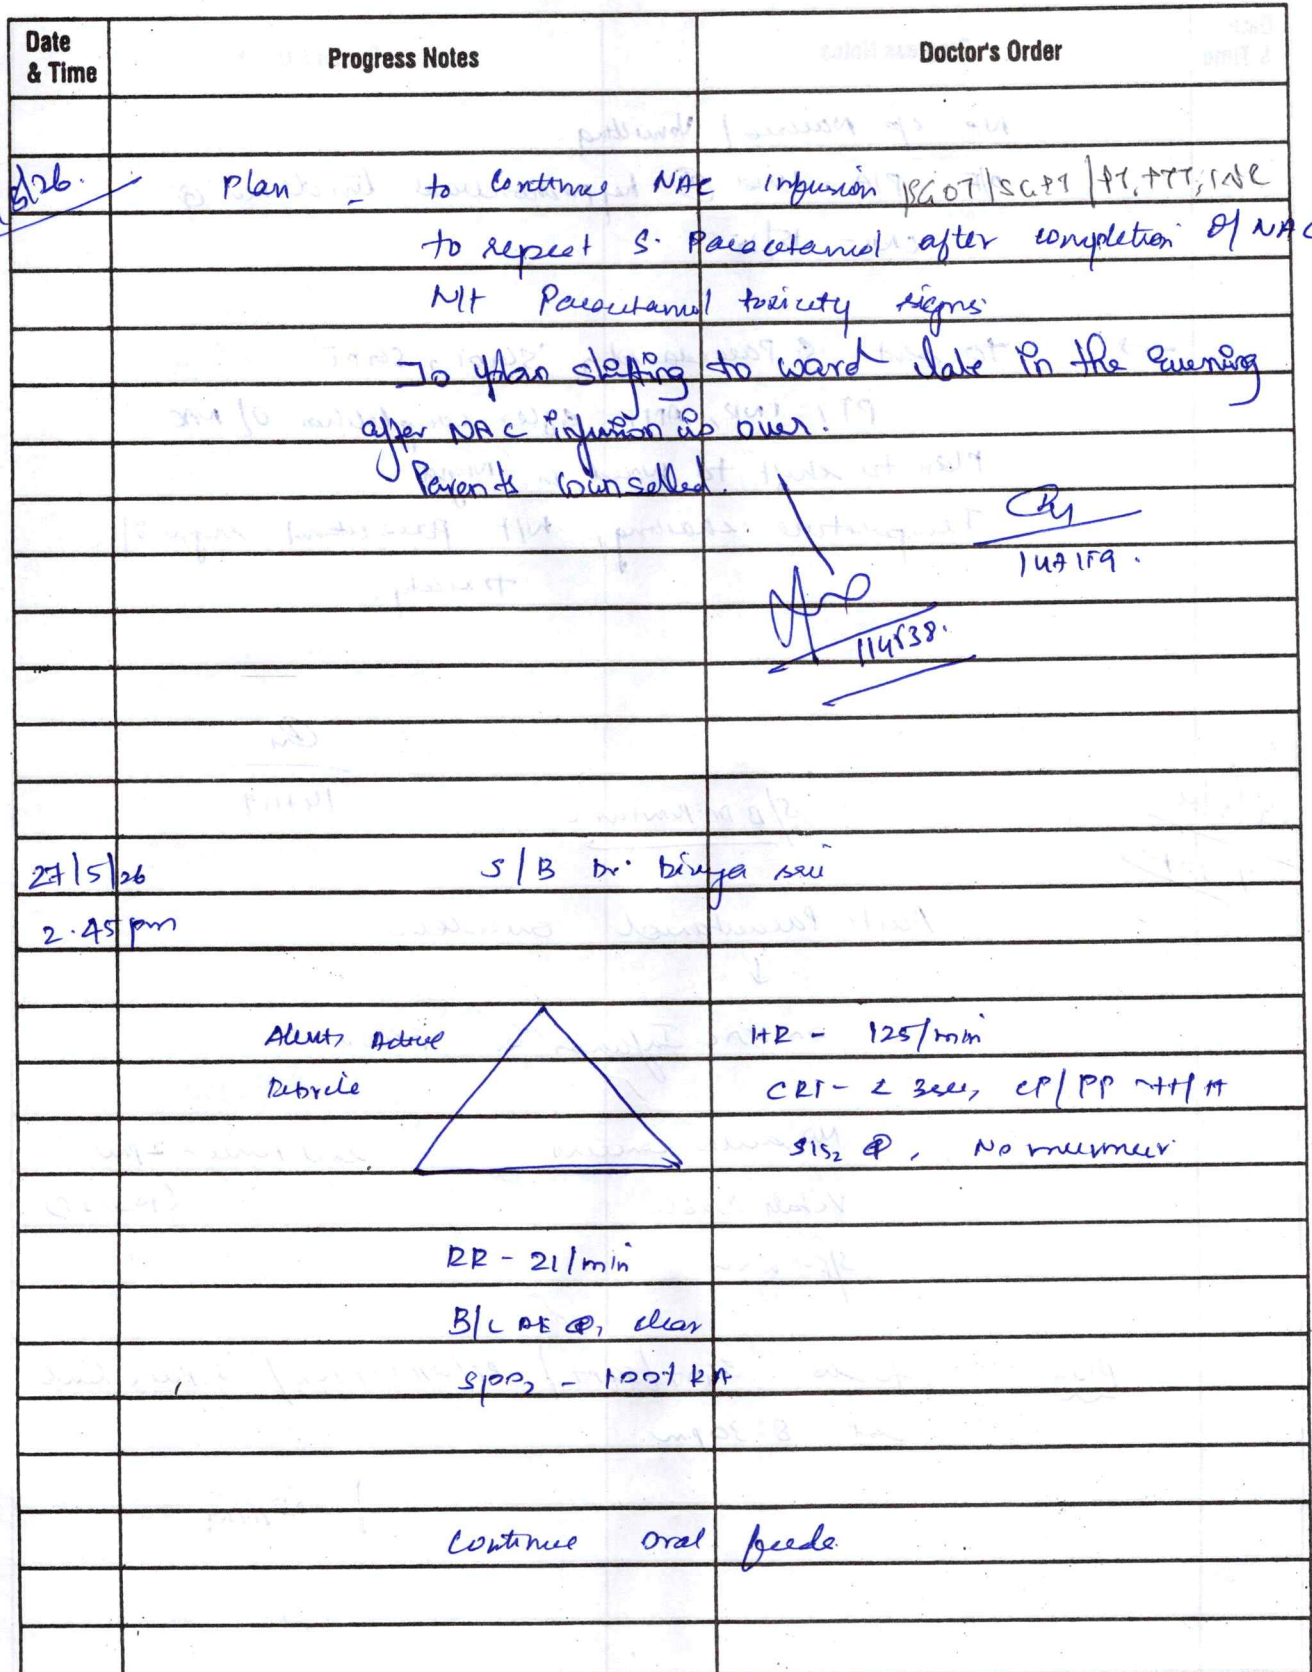 Date & Time
Progress Notes
Doctor's Order
5/26.
Plan - to continue NAC infusion SGOT/SGPT/PT, PTT, INR
to repeat S. Paracetamol after completion of NAC
N/t Paracetamol toxicity signs
To plan shifting to ward late in the Evening
after NAC infusion is over.
Parents counselled.
114838.
27/5/26
S/B Dr. Divya sri
2.45 pm
Alert, Active
HR - 125/min
Febrile
CRT - < 3sec, CP/PP
S1S2 ⊕, No murmur
RR - 21/min
B/L AE ⊕, clear
SpO2 - 100% RA
Continue oral feeds